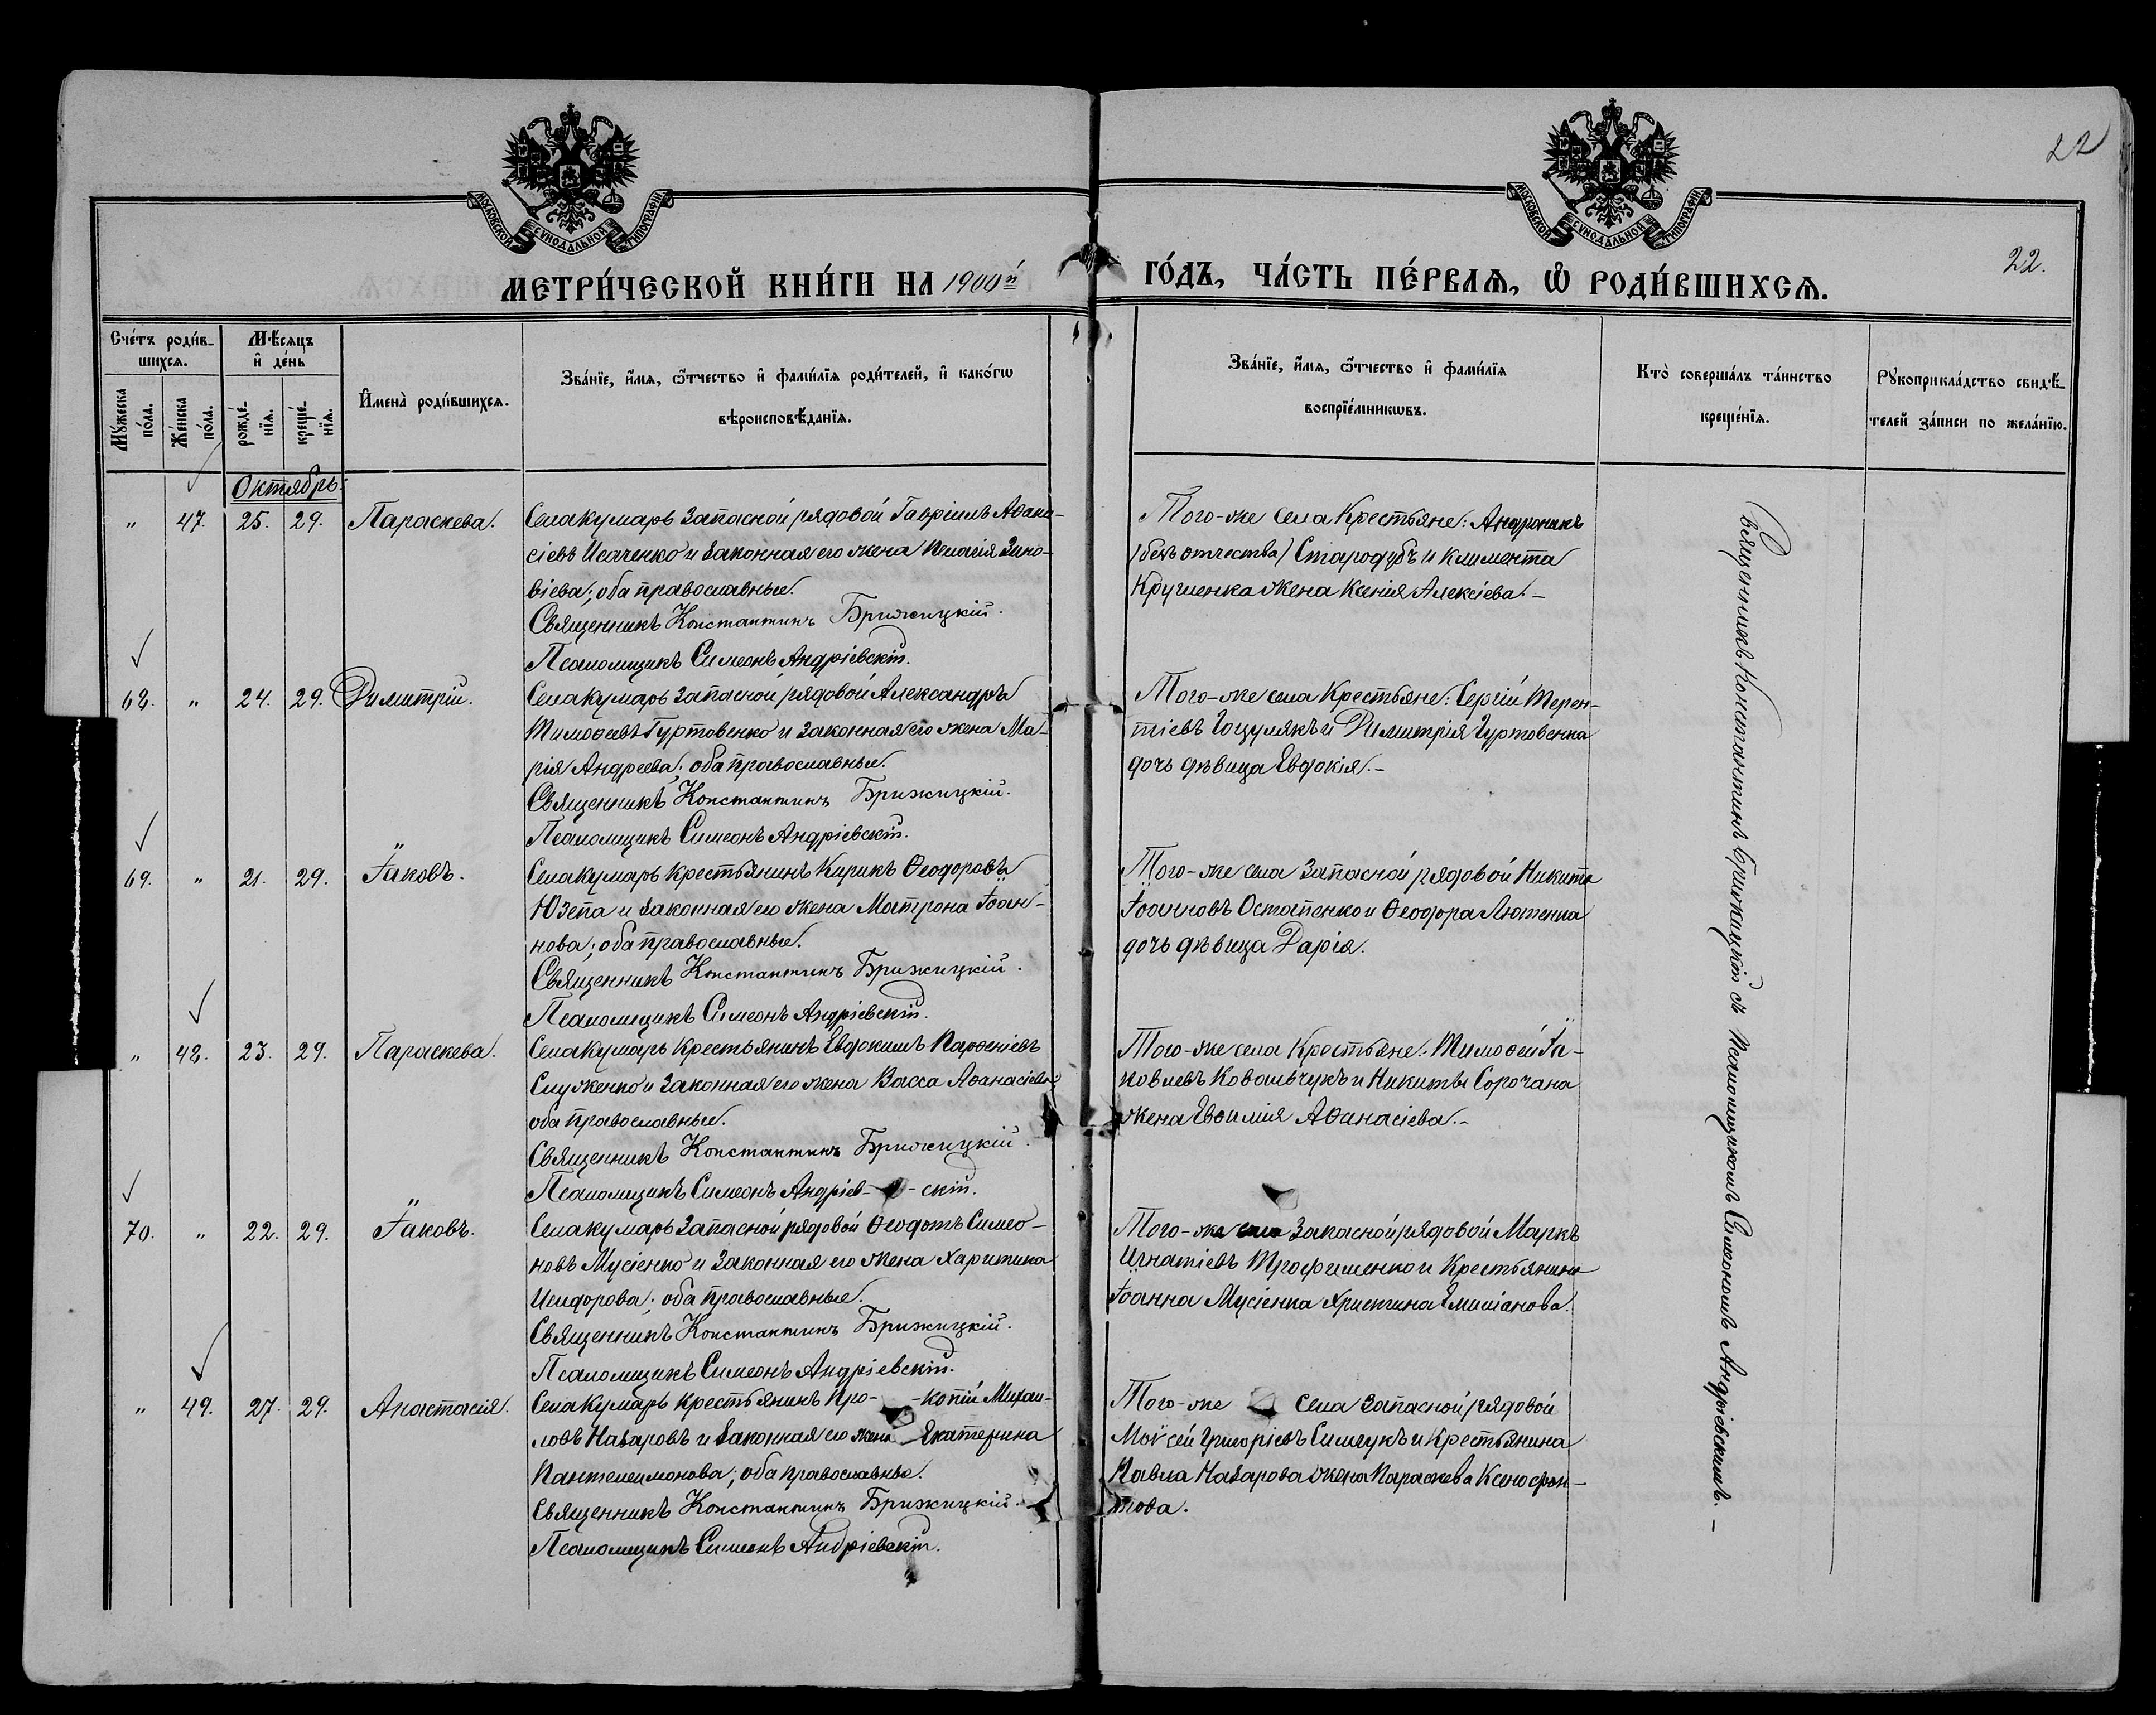 22
МОСКОВСКОЙ СѴНОДАЛЬНОЙ ТИПОГРАФІИ
МОСКОВСКОЙ СѴНОДАЛЬНОЙ ТИПОГРАФІИ
МЕТРИ́ЧЕСКОЙ КНИ́ГИ НА 1900й ГО́ДЪ, ЧА́СТЬ ПЕ́РВАѦ, Ѡ҆ РОДИ́ВШИХСѦ. 22.
Сче́тъ роди́в-
шихся.
Мꙋ́жеска по́ла.
Же́нска по́ла.
Мѣ́сяцъ
и҆ де́нь
рожде́-
нїя.
креще́-
нїя.
И҆мена̀ роди́вшихся.
Зва́нїе, и҆́мя, ѻ҆́тчество и҆ фами́лїя роди́телей, и҆ како́гѡ
вѣроисповѣ́данїя.
Зва́нїе, и҆́мя, ѻ҆́тчество и҆ фами́лїя
воспрїе́мникѡвъ.
Кто̀ соверша́лъ та́инство
креще́нїя.
Рꙋкоприкла́дство свидѣ́-
телей за́писи по жела́нїю.
Октябрь:
" 47. 25. 29. Параскева.
Села Кумаръ Запасной рядовой Гавріилъ Аѳана-
сіевъ Исаченко и законная его жена Пелагія Зино-
віева; оба православные.
Священникъ Константинъ Брижицкій.
Псаломщикъ Симеонъ Андріевскій.
Того-же села Крестьяне: Андроникъ
(безъ отчества) Стародубъ и Климента
жена Ксенія Алексіева.-
68. " 24. 29. Димитрій.
Села Кумаръ Запасной рядовой Александръ
Тимоѳеевъ Гуртовенко и Законная его жена Ма-
рія Андреева; оба православные.
Священникъ Константинъ Брижицкій.
Псаломщикъ Симеонъ Андріевскій.
Того-же села Крестьяне: Сергій Терен-
тіевъ Гоцулякъ и Димитрія Гуртовенка
дочь дѣвица Евдокія.-
69. " 21. 29. Іаковъ.
Села Кумаръ Крестьянинъ Кирикъ Ѳеодоровъ
Юзепа и законная его жена Матрона Іоан-
нова; оба православные.
Священникъ Константинъ Брижицкій.
Псаломщикъ Симеонъ Андріевскій.
Того-же села Запасной рядовой Никита
Іоанновъ Остапенко и Ѳеодора Лютенка
дочь дѣвица Дарія.
" 48. 23. 29. Параскева.
Села Кумаръ Крестьянинъ Евдокимъ Парѳеніевъ
Служенко и Законная его жена Васса Аѳанасіева;
оба православные.
Священникъ Константинъ Брижицкій.
Псаломщикъ Симеонъ Андріев- -скій.
Того-же села Крестьяне: Тимоѳей Іа-
ковлевъ Ковальчукъ и Никиты Сорочана
жена Евѳимія Аѳанасіева.-
70. " 22. 29. Іаковъ.
Села Кумаръ Запасной рядовой Ѳеодотъ Симео-
новъ Мусіенко и Законная его жена Харитина
Исидорова; оба православные.
Священникъ Константинъ Брижицкій.
Псаломщикъ Симеонъ Андріевскій.
Того-же села Запасной рядовой Маркъ
Игнатіевъ Трофименко и Крестьянина
Іоанна Мусіенка Христина Емиліанова.
" 49. 27. 29. Анастасія.
Села Кумаръ Крестьянинъ Про- -копій Михаи-
ловъ Назаровъ и законная его жена Екатерина
Пантелеимонова; оба православные.
Священникъ Константинъ Брижицкій.
Псаломщикъ Симеонъ Андріевскій.
Того-же села Запасной рядовой
Моисей Григоріевъ Симчукъ и Крестьянина
Павла Назарова жена Параскева Ксенофон-
това.
Священникъ Константинъ Брижицкій съ Псаломщикомъ Симеономъ Андріевскимъ.-